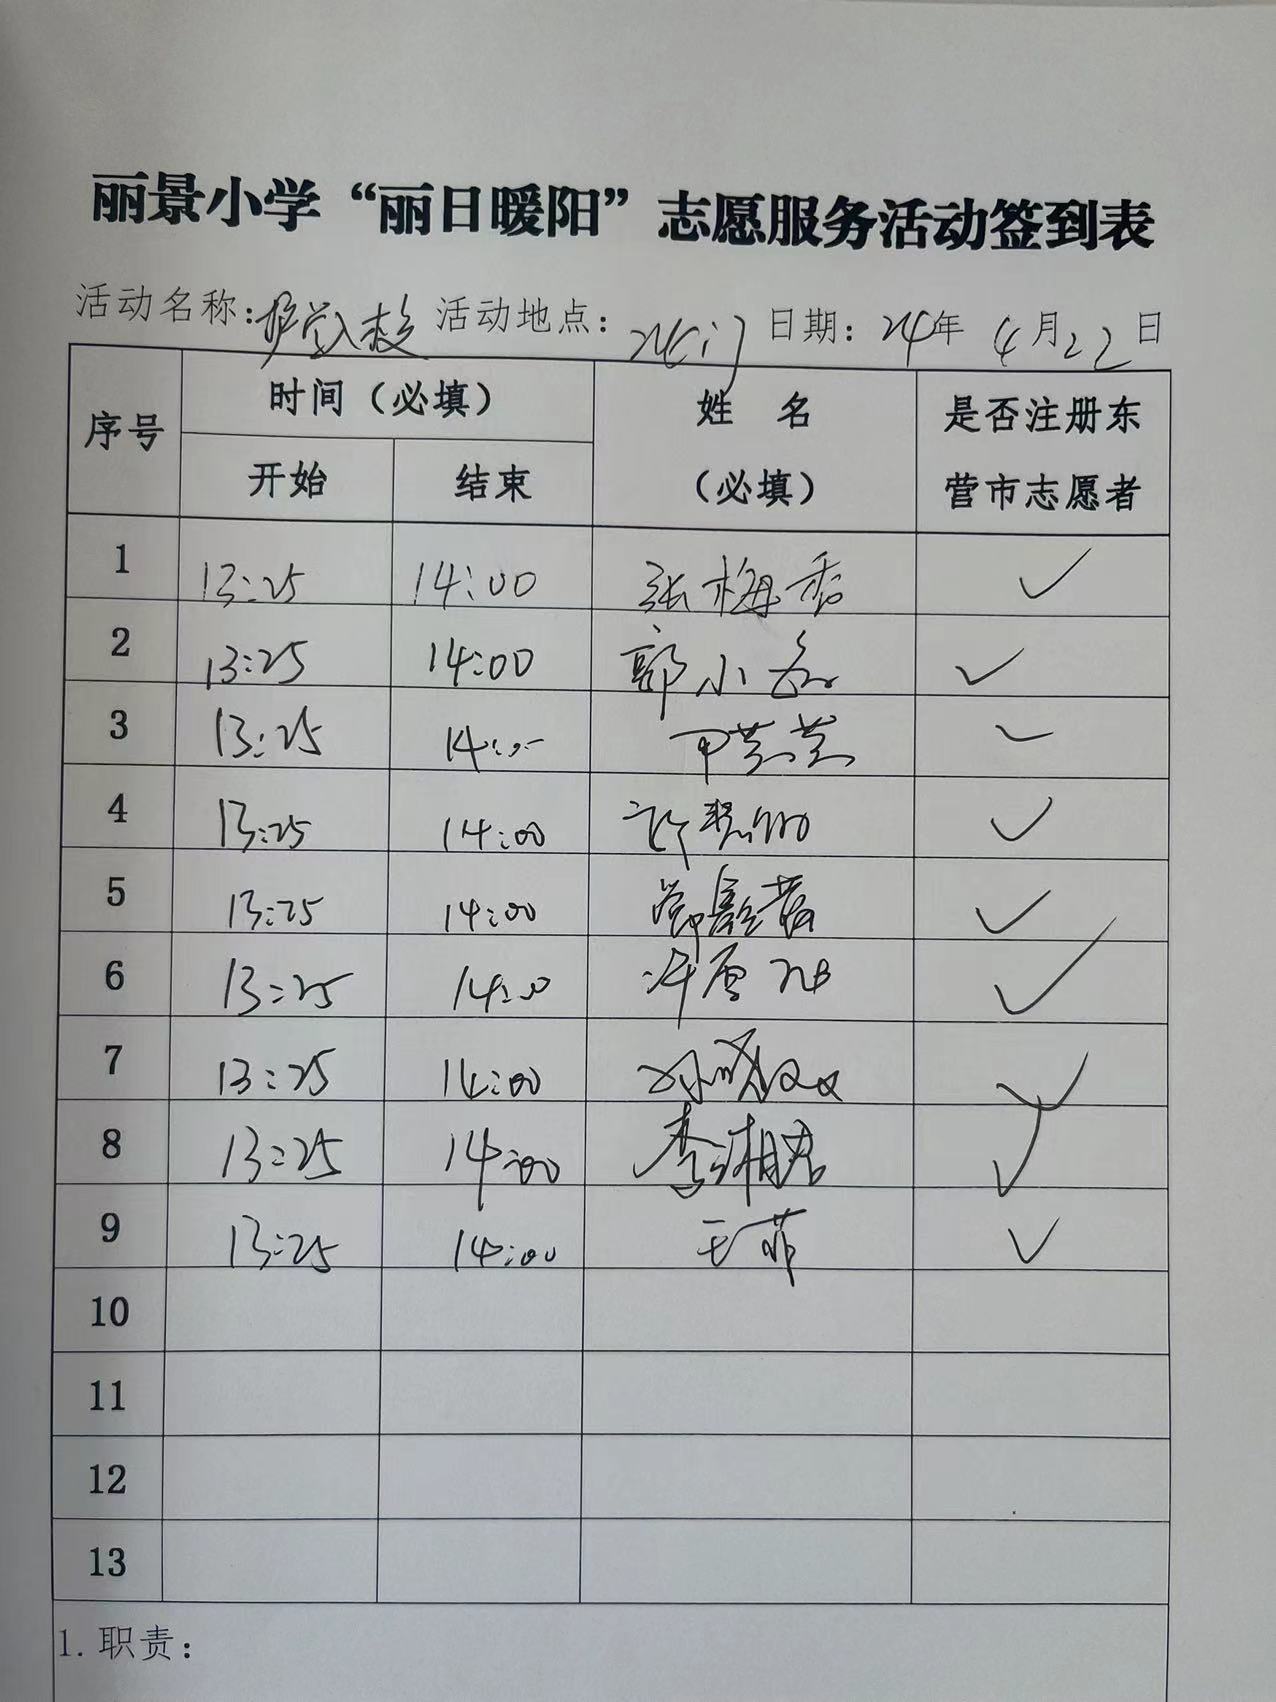 丽景小学“丽日暖阳”志愿服务活动签到表
活动名称:护学入校 活动地点: 北门 日期: 24年 4月22日
序号 时间（必填） 姓 名 是否注册东
开始 结束 （必填） 营市志愿者
1 13:25 14:00 张梅香 ✓
2 13:25 14:00 郭小磊 ✓
3 13:25 14:00 ✓
4 13:25 14:00 ✓
5 13:25 14:00 ✓
6 13:25 14:00 ✓
7 13:25 14:00 ✓
8 13:25 14:00 李湘君 ✓
9 13:25 14:00 王菲 ✓
10
11
12
13
1. 职责: